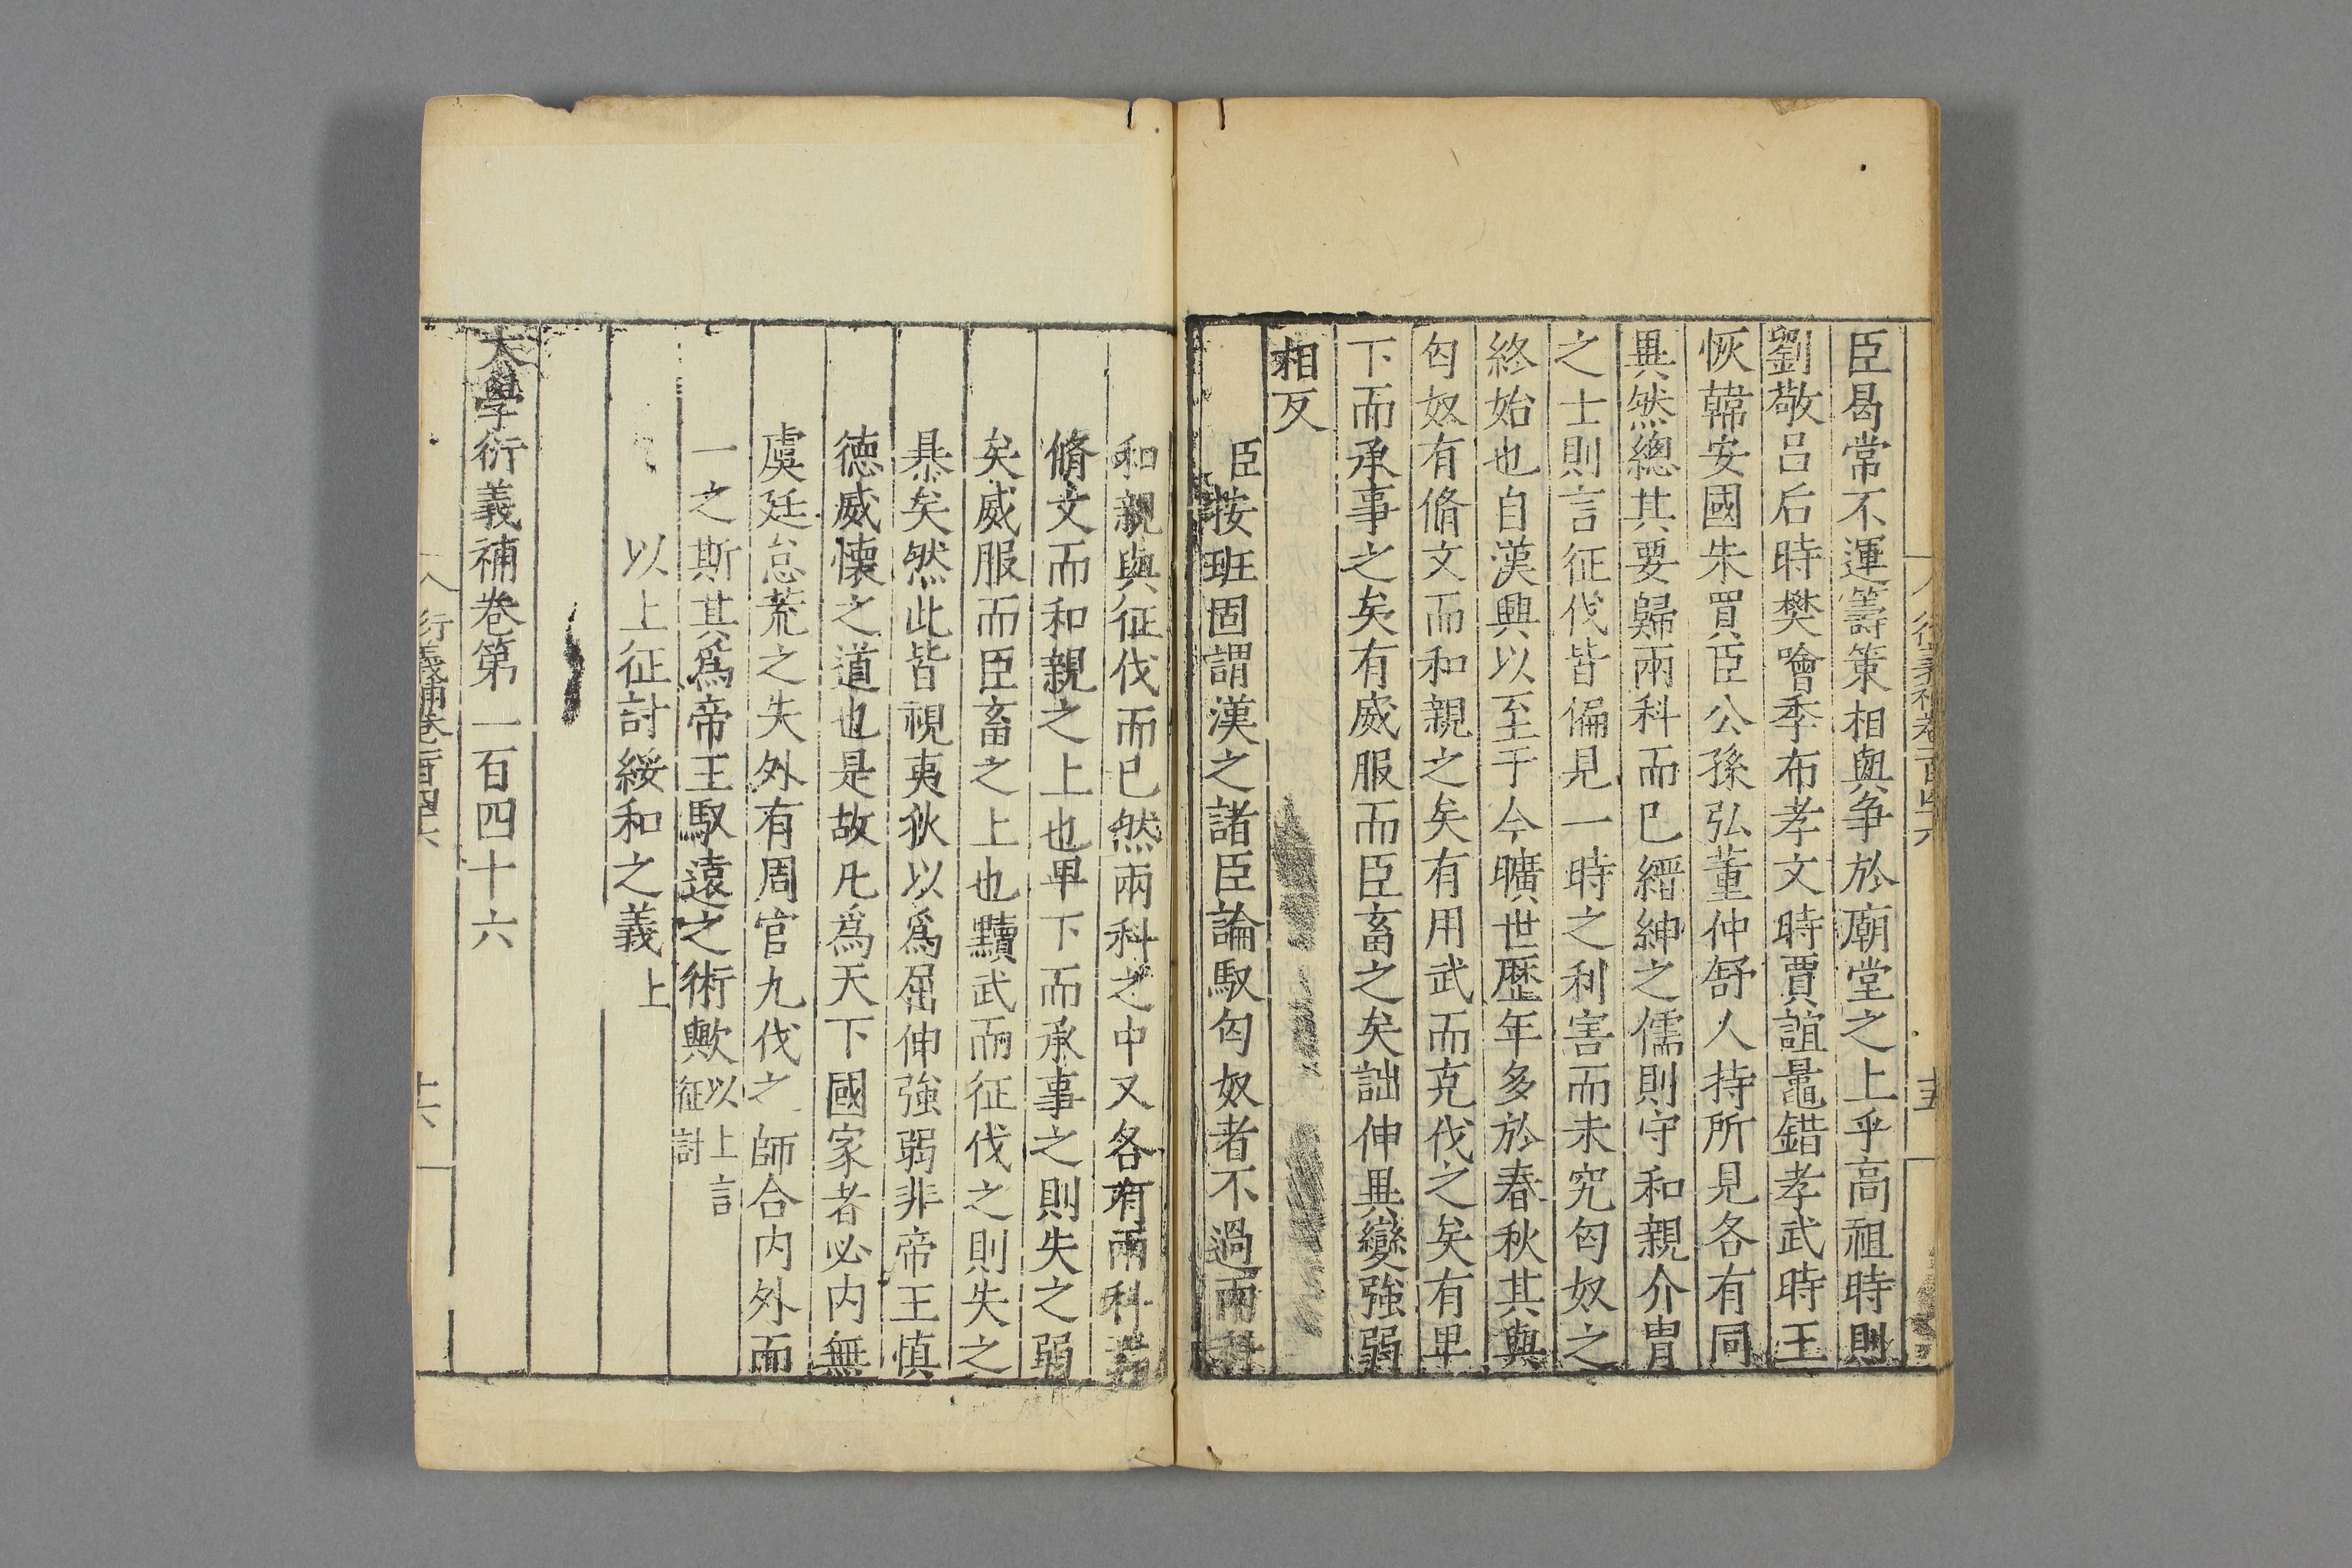 臣曷常不運籌策相與争於廟堂之上乎高祖時則
劉敬吕后時樊噲季布孝文時賈誼鼂錯孝武時王
恢韓安國朱買臣公孫弘董仲舒人持所見各有同
異然總其要歸兩科而已縉紳之儒則守和親介胄
之士則言征伐皆偏見一時之利害而未究匈奴之
終始也自漢興以至于今曠世歷年多於春秋其與
匈奴有脩文而和親之矣有用武而克伐之矣有卑
下而承事之矣有威服而臣畜之矣詘伸異變強弱
相反
臣按班固謂漢之諸臣論馭匈奴者不過兩科
和親與征伐而已然兩科之中又各有兩科焉
脩文而和親之上也卑下而承事之則失之弱
矣威服而臣畜之上也黷武而征伐之則失之
暴矣然此皆視夷狄以為屈伸強弱非帝王慎
德威懷之道也是故凡為天下國家者必内無
虞廷怠荒之失外有周官九伐之師合内外而
一之斯其為帝王馭遠之術歟以上言征討
以上征討綏和之義上
大學衍義補卷第一百四十六
衍義補卷一百四十六
十六